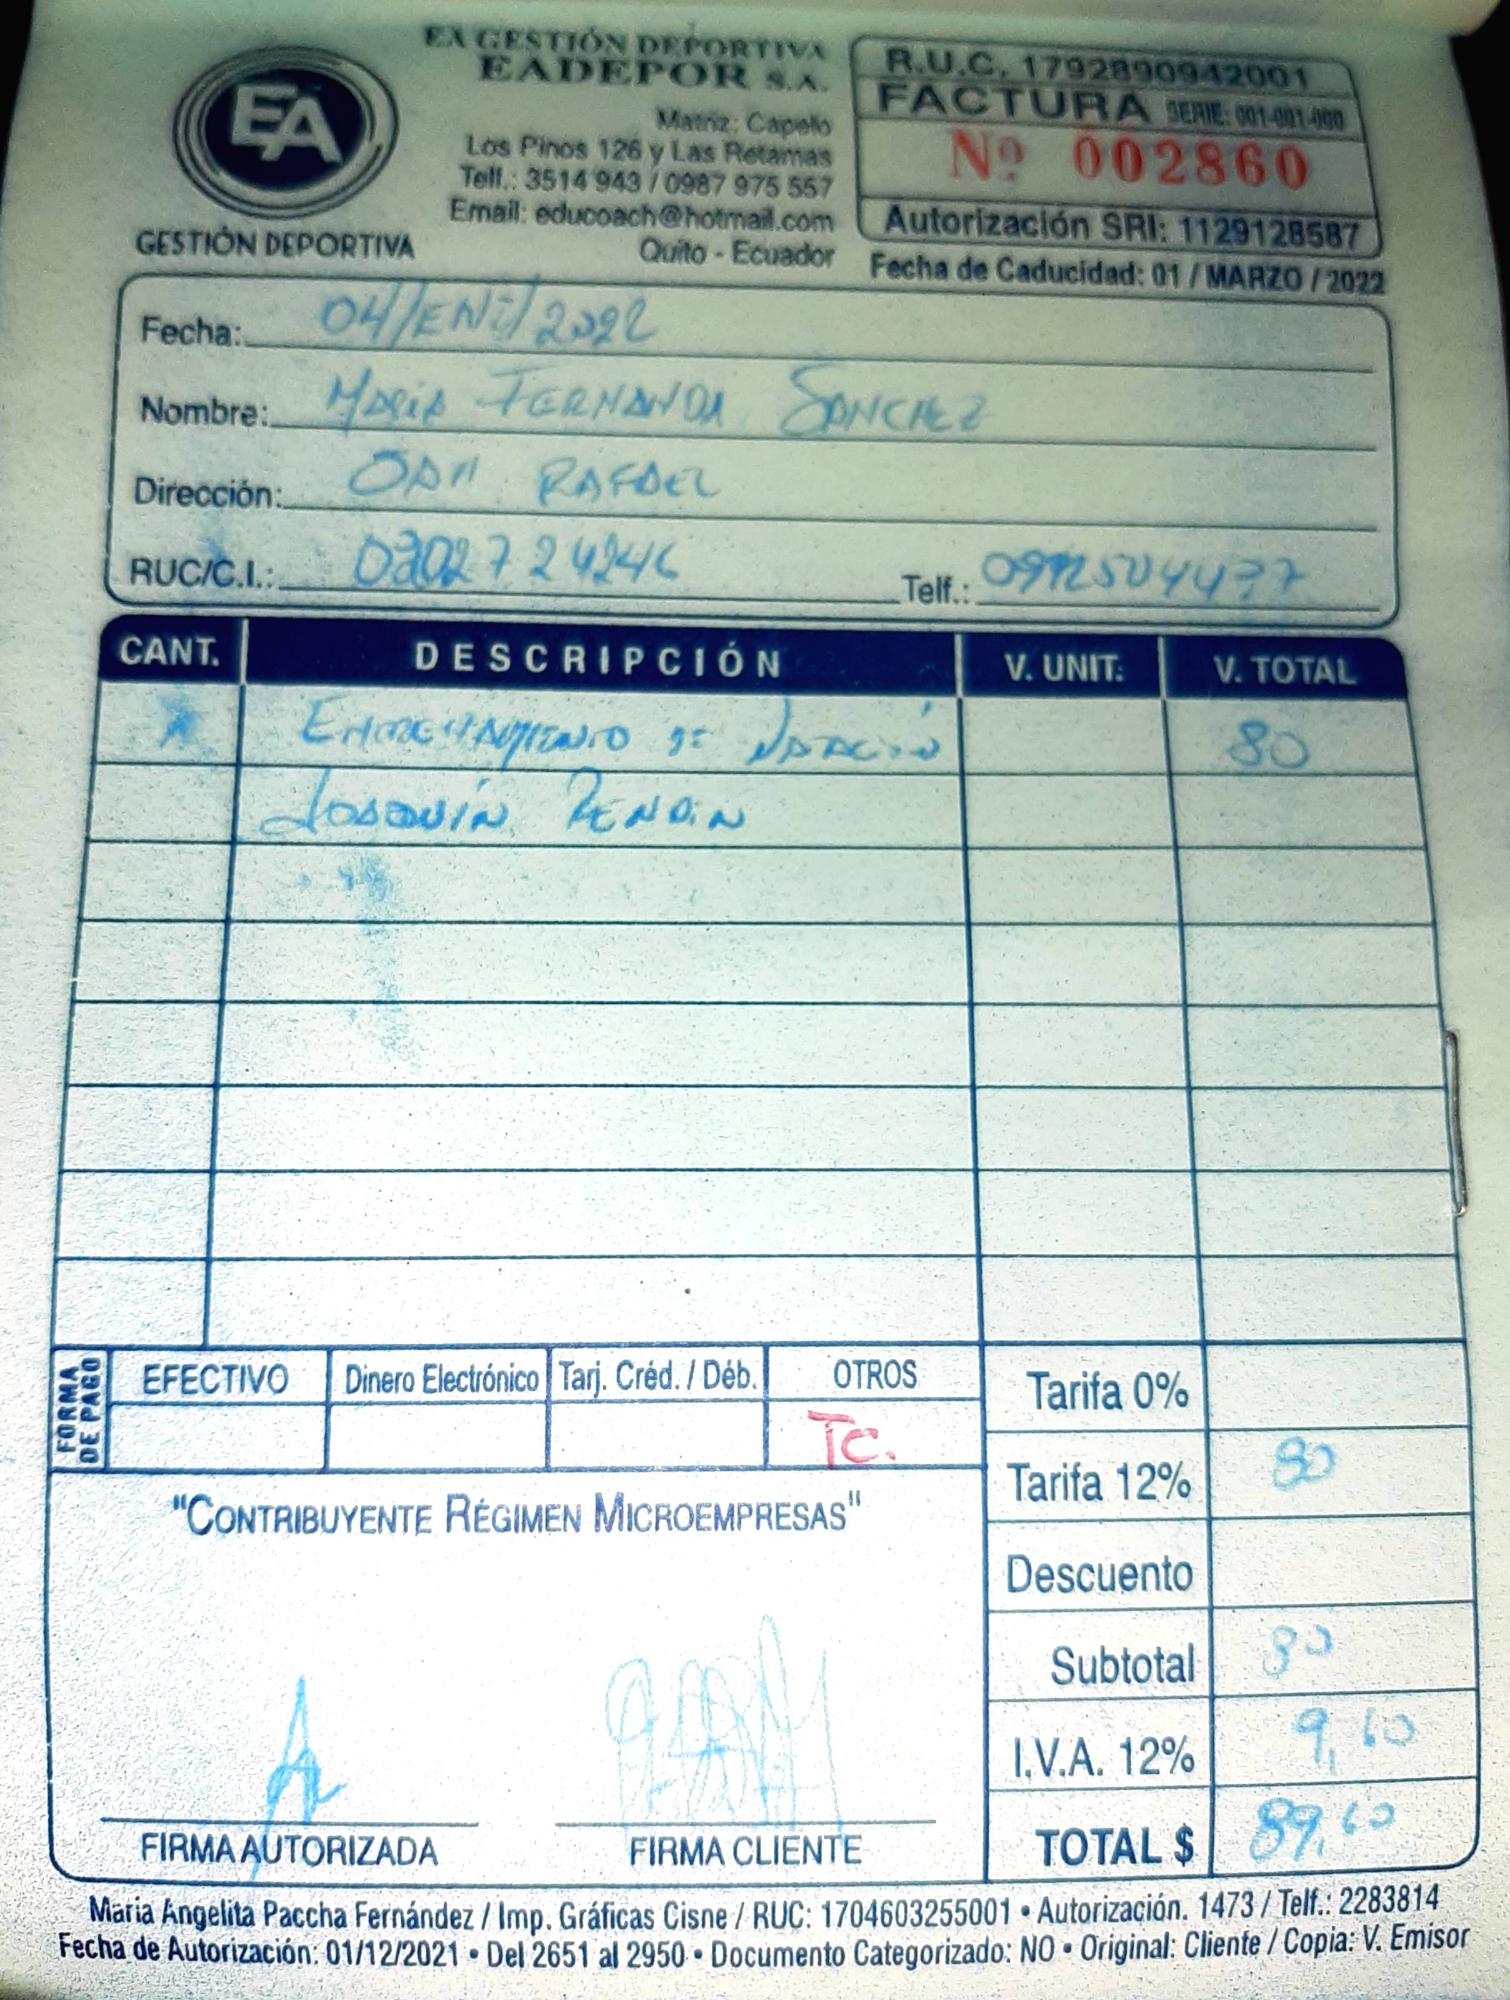 EA GESTIÓN DEPORTIVA
EADEPOR S.A.
EA
GESTIÓN DEPORTIVA
Matriz: Capelo
Los Pinos 126 y Las Retamas
Telf.: 3514 943 / 0987 975 557
Email: educoach@hotmail.com
Quito - Ecuador
R.U.C. 1792890942001
FACTURA SERIE: 001-001-000
Nº 002860
Autorización SRI: 1129128587
Fecha de Caducidad: 01 / MARZO / 2022
Fecha: 04/ENE/2022
Nombre: MARÍA FERNANDA SANCHEZ
Dirección: RAFAEL
RUC/C.I.:
Telf.:
CANT. DESCRIPCIÓN V. UNIT: V. TOTAL
ENTRENAMIENTO DE NATACIÓN 80
JOAQUÍN
FORMA DE PAGO
EFECTIVO Dinero Electrónico Tarj. Créd. / Déb. OTROS
TC.
Tarifa 0%
Tarifa 12% 80
Descuento
Subtotal 80
I.V.A. 12% 9,60
TOTAL $ 89,60
"CONTRIBUYENTE RÉGIMEN MICROEMPRESAS"
FIRMA AUTORIZADA FIRMA CLIENTE
Maria Angelita Paccha Fernández / Imp. Gráficas Cisne / RUC: 1704603255001 • Autorización. 1473 / Telf.: 2283814
Fecha de Autorización: 01/12/2021 • Del 2651 al 2950 • Documento Categorizado: NO • Original: Cliente / Copia: V. Emisor